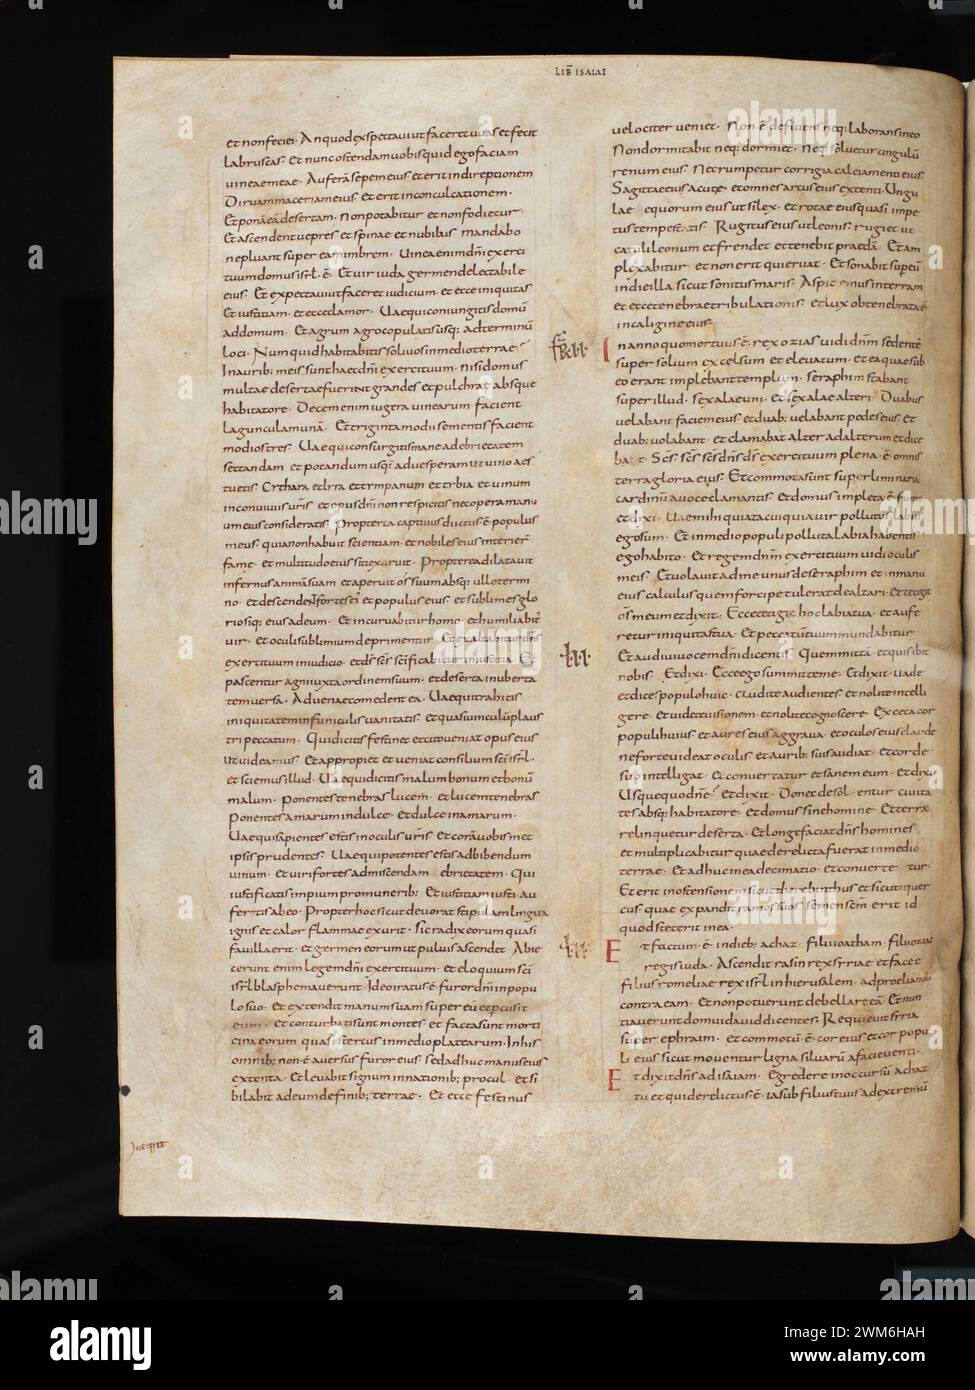 LIB ISAIAE
et non feciei. An quod exspectaui ut faceret uuas et fecit
labruscas. Et nunc ostendam uobis quid ego faciam
uineae meae. Auferā sepem eius et erit in direptionem
Diruam maceriam eius et erit in conculcationem.
Et ponā eā desertam. non potabitur et non fodietur.
Et ascendent uepres et spinae et nubibus mandabo
ne pluant super eam imbrem. Uinea enim dn̄i exerci
tuum domus isrl̄ ē. Et uir iuda germen delectabile
eius. Et expectaui ut faceret iudicium. et ecce iniquitas
Et iustitiam. et ecce clamor. Uae qui coniungitis domū
ad domum. Et agrum agro copulatis usq; ad terminū
loci. Numquid habitabitis soli uos in medio terrae
In aurib; meis sunt haec dn̄i exercituum. nisi domus
multae desertae fuerint grandes et pulchrae absque
habitatore. Decem enim iugera uinearum facient
lagunculam unā. Et triginta modii sementis facient
modios tres. Uae qui consurgitis mane ad ebrietatem
sectandam et potandum usq; ad uesperam ut uino aes
tuetis. Cithara et lyra et tympanum et tybia et uinum
in conuiuiis uris et opus dn̄i non respicitis nec opera manu
um eius consideratis. Propterea captiuus ductus ē populus
meus. quia non habuit scientiam. et nobiles eius interier
fame. et multitudo eius siti exaruit. Propterea dilatauit
infernus animā suam et aperuit os suum absq; ullo termi
no. et descendent fortes ei et populus eius. et sublimes glo
riosiq; eius ad eum. Et incuruabitur homo. et humiliabit
uir. et oculi sublimium deprimentur Et exaltabitur dn̄s
exercituum in iudicio. et ds̄ scs̄ scīficabitur in iustitia. Et
pascentur agni iuxta ordinem suum. et deserta in uberta
tem uersa. Aduenae comedent ea. Uae qui trahitis
iniquitatem in funiculis uanitatis et quasi uinculū plaus
tri peccatum. Qui dicitis festinet et cito ueniat opus eius
ut uideamus. Et appropiet et ueniat consilium scī isrl̄.
et sciemus illud. Uae qui dicitis malum bonum et bonū
malum. ponentes tenebras lucem. et lucem tenebras
Ponentes amarum in dulce. Et dulce in amarum.
Uae qui sapientes estis in oculis uris. Et corā uobismet
ipsis prudentes. Uae qui potentes estis ad bibendum
uinum. et uiri fortes ad miscendam ebrietatem. Qui
iustificatis impium pro munerib; Et iustitiam iusti au
fertis ab eo. Propter hoc sicut deuorat stipulam lingua
ignis et calor flammae exurit. sic radix eorum quasi
fauilla erit. et germen eorum ut puluis ascendet. Abie
cerunt enim legem dn̄i exercituum. et eloquium scī
isrl̄ blasphemauerunt. Ideo iratus ē furor dn̄i in popu
lo suo. et extendit manum suam super eū et pcussit
eum. Et conturbati sunt montes et facta sunt morti
cina eorum quasi stercus in medio platearum. In his
omnib; non ē auersus furor eius sed adhuc manus eius
extenta. Et leuabit signum in nationib; procul. et si
bilabit ad eum de finib; terrae. Et ecce festinus
uelociter ueniet. Non ē deficiens neq; laborans in eo
Non dormitabit neq; dormiet. Neq; soluetur cingulū
renum eius. Nec rumpetur corrigia calciamenti eius
Sagittae eius acutę. et omnes arcus eius extenti. Ungu
lae equorum eius ut silex. et rotae eius quasi impe
tus tempestatis. Rugitus eius ut leonis. rugiet ut
catuli leonum et frendet et tenebit praedā. Et am
plexabitur et non erit qui eruat. Et sonabit sup eū
in die illa sicut sonitus maris. Aspiciemus in terram
et ecce tenebrae tribulationis. et lux obtenebrata ē
in caligine eius.
In anno quo mortuus ē rex ozias uidi dn̄m sedentē
super solium excelsum et eleuatum. et ea quae sub
eo erant implebant templum. seraphim stabant
super illud. sex alae uni. et sex alae alteri. Duabus
uelabant faciem eius. et duab; uelabant pedes eius. et
duab; uolabant. et clamabat alter ad alterum et dice
bat. Scs̄ scs̄ scs̄ dn̄s ds̄ exercituum plena ē omnis
terra gloria eius. Et commota sunt superliminaria
cardinū a uoce clamantis. Et domus impleta ē fumo
et dixi. Uae mihi quia tacui quia uir pollutus labiis
ego sum. Et in medio populi polluta labia habentis
ego habito. Et regem dn̄m exercituum uidi oculis
meis. Et uolauit ad me unus de seraphim et in manu
eius calculus quem forcipe tulerat de altari. Et tetigit
os meum et dixit. Ecce tetigit hoc labia tua. et aufe
retur iniquitas tua. Et peccatū tuum mundabitur
Et audiui uocem dn̄i dicentis. Quem mittā. et quis ibit
nobis. Et dixi. Ecce ego sum mitte me. Et dixit. Uade
et dices populo huic. Audite audientes et nolite intelli
gere. et uidete uisionem. et nolite cognoscere. Exceca cor
populi huius et aures eius aggraua. et oculos eius claude
ne forte uideat oculis et aurib; suis audiat. et corde
suo intelligat. Et conuertatur et sanem eum. Et dixi.
Usquequo dn̄e. Et dixit. Donec desolentur ciuita
tes absq; habitatore. Et domus sine homine. Et terra
relinquetur deserta. Et longe faciat dn̄s homines
et multiplicabitur quae derelicta fuerat in medio
terrae. Et adhuc in ea decimatio. et conuertetur.
Et erit in ostensionem sicut therebinthus et sicuti quer
cus. quae expandit ramos suos. semen scm̄ erit id
quod steterit in ea.
Et factum ē in dieb; achaz. filii ioatham. filii oziae
regis iuda. Ascendit rasin rex syriae et facee
filius romeliae rex isrl̄ in hierusalem. ad proeliandum
contra eam. Et non potuerunt debellare eā. Et nun
tiauerunt domui dauid dicentes. Requieuit syria
super ephraim. et commotū ē cor eius et cor popu
li eius sicut mouentur ligna siluarū a facie uenti.
Et dixit dn̄s ad isaiam. Egredere in occursū achaz
tu et qui derelictus ē. iasub filius tuus ad extremū
alamy
Image ID: 2WM6HAH
www.alamy.com